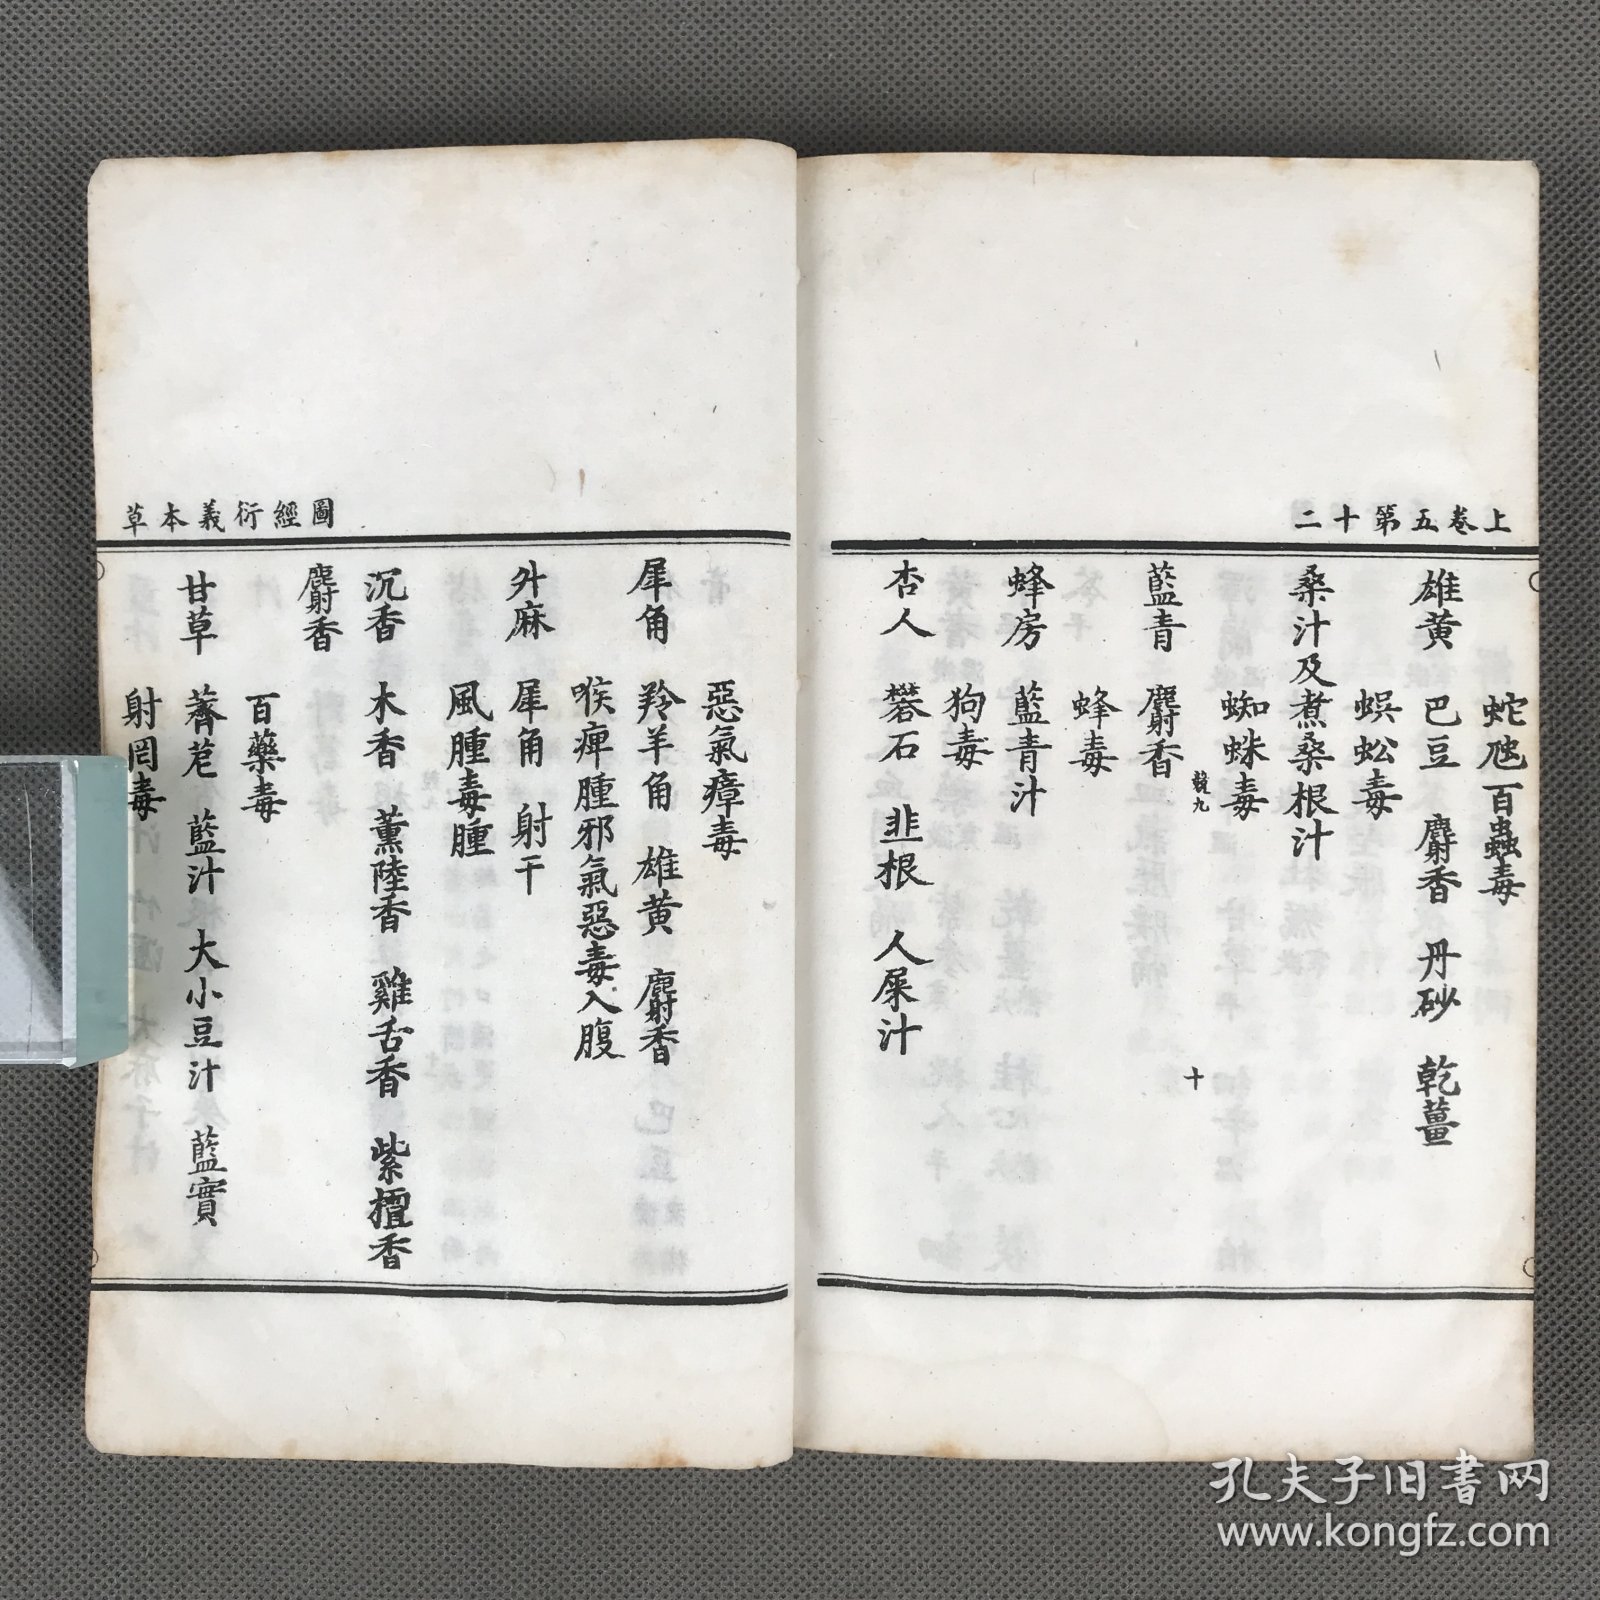 上卷五第十二
蛇虺百蟲毒
雄黃 巴豆 麝香 丹砂 乾薑
蜈蚣毒
桑汁及煮桑根汁
蜘蛛毒
競九
十
藍青 麝香
蜂毒
蜂房 藍青汁
狗毒
杏人 礬石 韭根 人屎汁
圖經衍義本草
惡氣瘴毒
犀角 羚羊角 雄黃 麝香
喉痺腫邪氣惡毒入腹
升麻 犀角 射干
風腫毒腫
沉香 木香 薰陸香 雞舌香 紫檀香
麝香
百藥毒
甘草 薺苨 藍汁 大小豆汁 藍實
射罔毒
孔夫子旧书网
www.kongfz.com